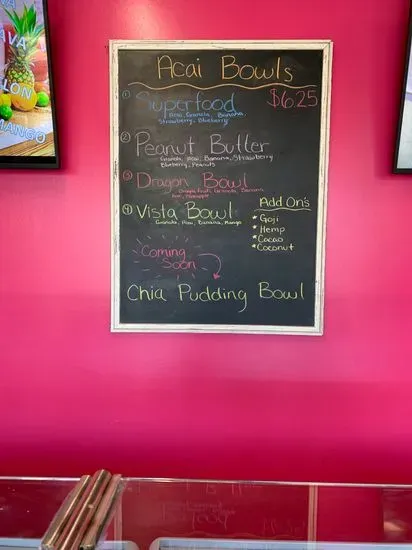 AVA
LON
MANGO
Acai Bowls
① Superfood $6.25
Acai, Granola, Banana,
Strawberry, Blueberry
② Peanut Butter
Granola, Acai, Banana, Strawberry
Blueberry, Peanuts
③ Dragon Bowl
Dragon Fruit, Granola, Banana
Pineapple
④ Vista Bowl
Granola, Acai, Banana, Mango
Add On's
* Goji
* Hemp
* Cacao
* Coconut
Coming
Soon
Chia Pudding Bowl